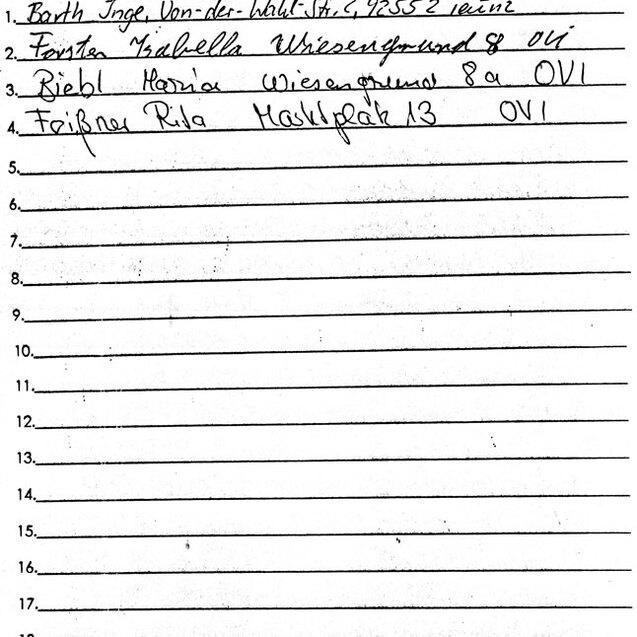 1. Barth Inge, Von-der-Wahl-Str. 2, 92552 Teunz
2. Forster Isabella Wiesengrund 8 OVI
3. Biebl Maria Wiesengrund 8a OVI
4. Feißner Rita Marktplatz 13 OVI
5.
6.
7.
8.
9.
10.
11.
12.
13.
14.
15.
16.
17.
18